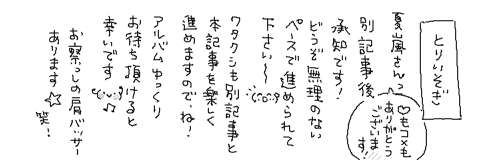 とりいそぎ
夏嵐さんっ
♡もコメも
ありがとう
ございます!
別記事後
承知です!
どうぞ無理のない
ペースで進められて
下さい〜
ワタクシも別記事と
本記事を楽しく
進めますので、ね!
アルバムゆっくり
お待ち頂けると
幸いです♪
お察っしの肩バッサー
あります☆笑!